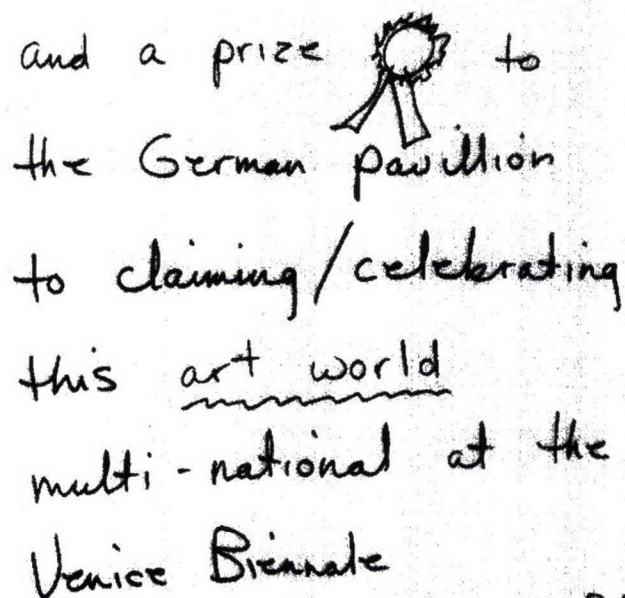 and a prize to
the German pavillion
to claiming/celebrating
this art world
multi-national at the
Venice Biennale